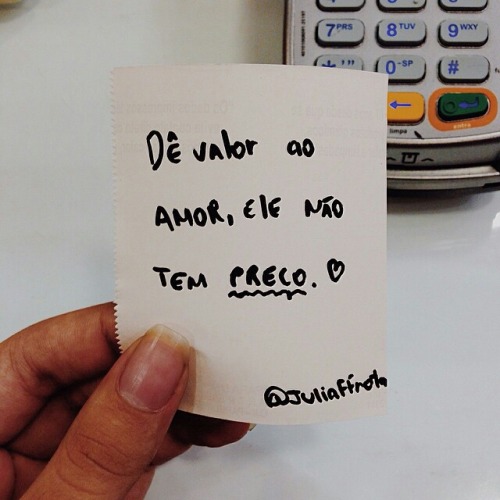 7PRS 8TUV 9WXY
*'" 0-SP #
limpa entra
DÊ valor ao
AMOR, ElE NÃO
TEM PREÇO. ♡
@Juliaffrota